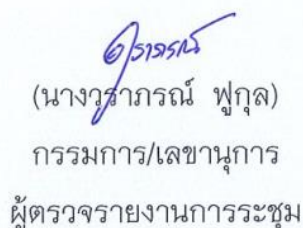 (นางวราภรณ์ ฟูกุล)
กรรมการ/เลขานุการ
ผู้ตรวจรายงานการระชุม